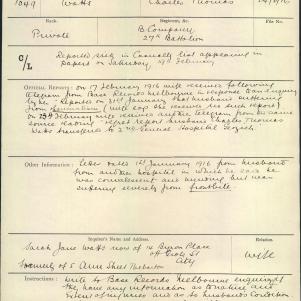 1049 Watts Charles Thomas
Rank. Regiment, &c. File No.
Private B Company
27th Battalion
C/L Reported sick in Casualty list appearing in
papers on Saturday 19th February
OFFICIAL REPORTS: on 17 February 1916 wife received following
telegram from Base Records Melbourne in response to an inquiry
by her "Reported on 21st January that husband suffering
from (wife says she received no such report)
on 23rd February wife received another telegram from the same
source reading "regret report husband Charles Thomas
Watts transferred to 2nd General Hospital
Other Information: Letter dated 1st January 1916 from husband
from another hospital in which he said he
was convalescent and mending but was
suffering severely from frostbite.
Inquirer's Name and Address. Relation
Sarah Jane Watts now of 14 Byron Place
off St
City Wife
formerly of 5 Ann Street Thebarton
Instructions: Write to Base Records Melbourne enquiring if
they have any information as to nature and
extent of injuries and as to husband's condition